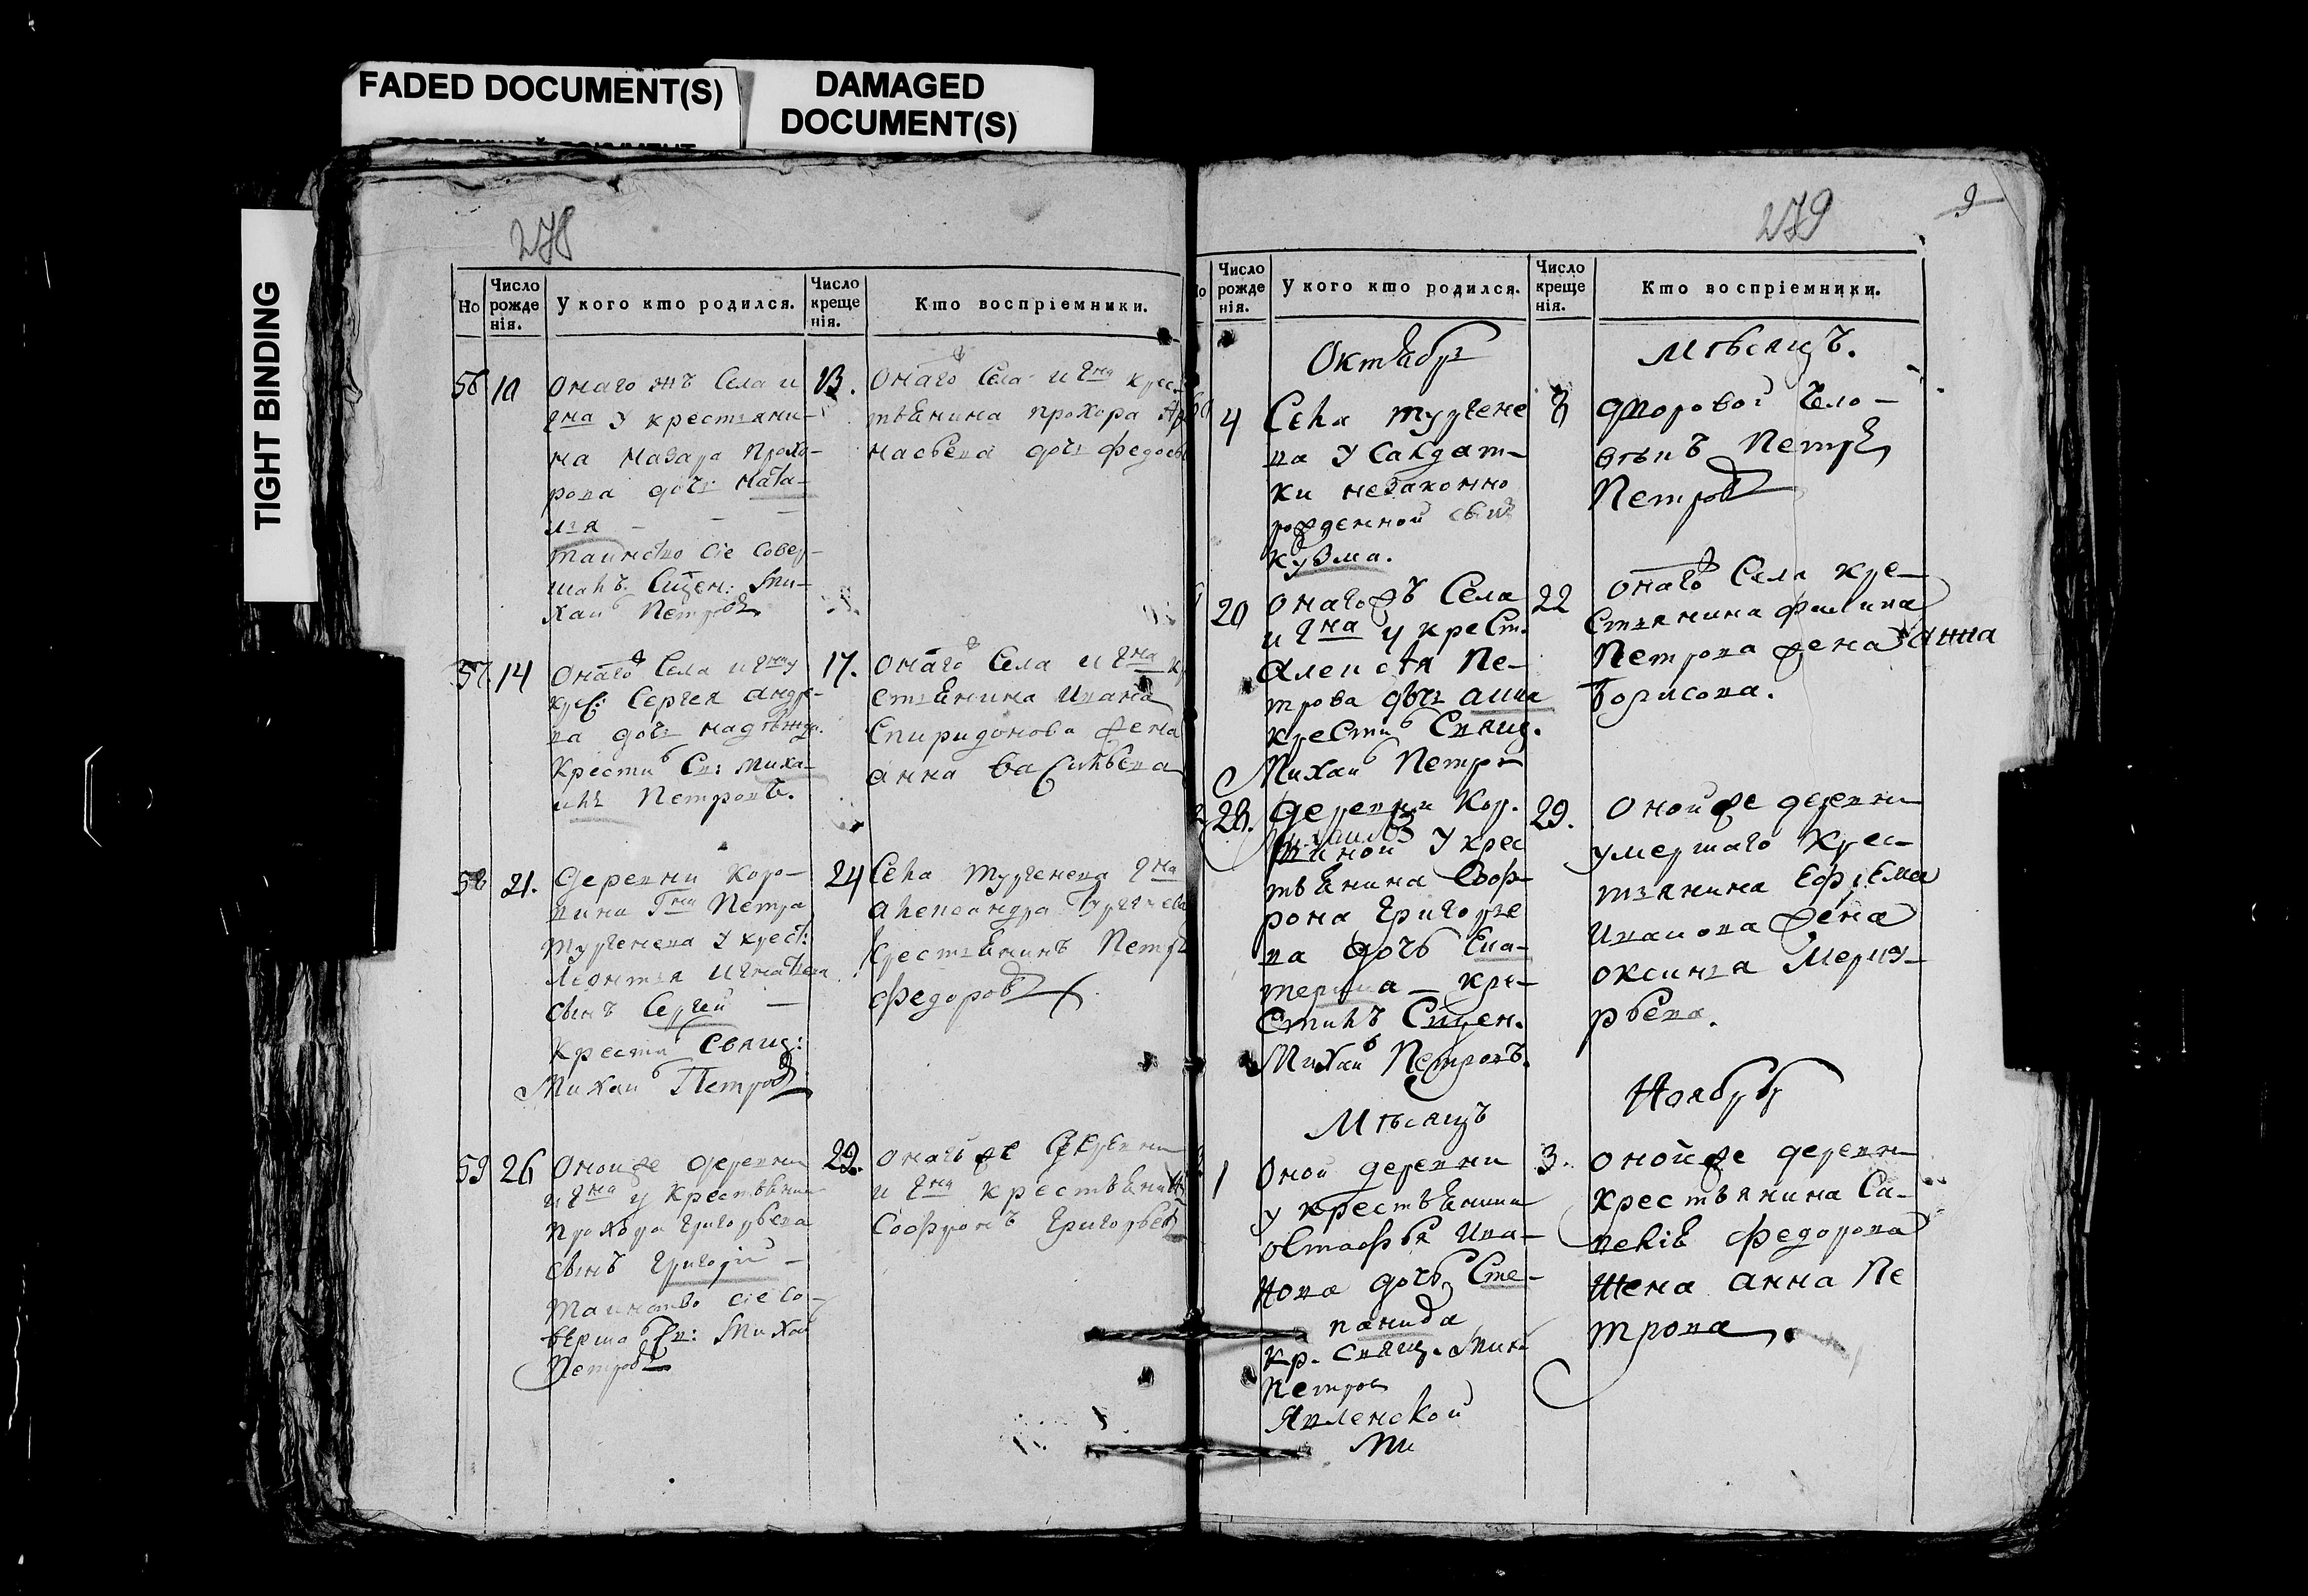 FADED DOCUMENT(S)
DAMAGED
DOCUMENT(S)
TIGHT BINDING
278
Но
Число
рожде
нія.
У кого кто родился.
Число
креще
нія.
Кто воспріемники.
56
10
Онаго жъ Села и
гна у крестьяни-
на Назара Прохо-
рова дочь Ната-
лья
таинство сіе совер-
шалъ Сщен: Ми-
хаил Петров
13.
Онаго Села и гна крес-
тьянина Прохора
дочь Федось
57
14
Онаго Села и гна у
крес: Сергея Андре-
ва дочь надежда.
Крестил Св: Миха-
илъ Петровъ.
17.
Онаго Села и гна к
стьянина Ивана
Спиридонова жена
анна васильева
58
21.
Деревни Коро-
вина Гна Петра
Тургенева у крест:
Леонтья Игнатьева
сынъ Сергей
Крестил Свящ:
Михаил Петров
24
Села Тургенева гна
александра Тургенева
крестьянинъ Петръ
Федоров
59
26
Оной же деревни
и гна у крестьянин
Прохора Григорьева
сынъ Григорій
Таинство сіе со-
верша Св: Михаи
Петров
29.
Онаго же деревни
и гна крестьянин
Софронъ Григорьев
279
9
Число
рожде
нія.
У кого кто родился.
Число
креще
нія.
Кто воспріемники.
Октябрь
Мѣсяцъ.
4
Села тургене
ва у Салдат-
ки незаконно
рожденной сын
Кузма.
8
дворовой чело-
векъ Петръ
Петров
20
Онагожъ Села
и гна у крест.
Алексея Пе-
трова дочь анна
крестил Свящ.
Михаил Петров
22
Онаго Села кре-
стьянина филипа
Петрова жена анна
Борисова.
28.
деревни Кор.
у крес
тьянина Соф-
рона Григорье
ва дочь Ека-
терина кре-
стилъ Сщен.
Михаил Петровъ.
29.
Оной же деревни
умершаго крес-
тьянина Ефрема
Иванова жена
оксинья
Мѣсяцъ
Ноябрь
1
Оной деревни
у крестьянина
остафья Ива-
нова дочь Сте-
панида
кр. свящ. Мих
Петров
3.
оной же деревни
крестьянина Са-
велія Федорова
жена анна Пе
трова.